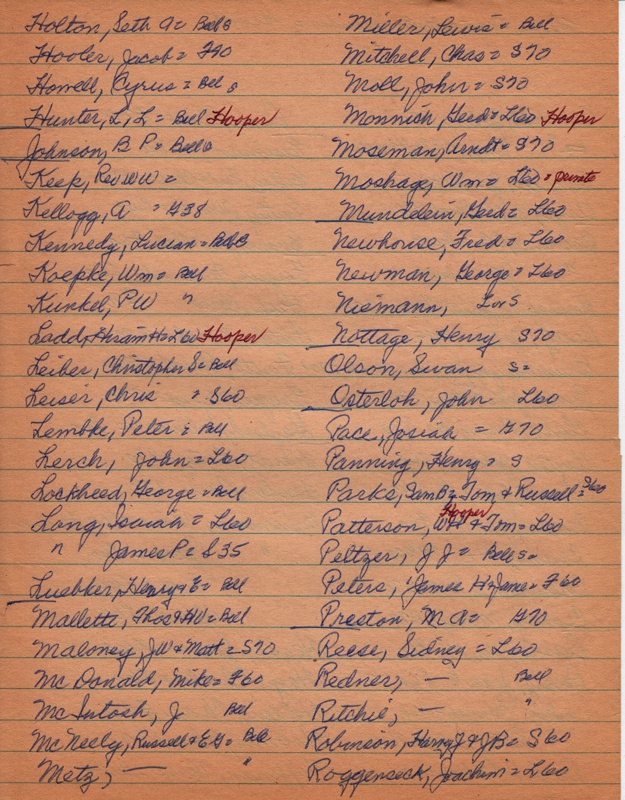 Holton, Seth A = Bell S
Hooler, Jacob = F90
Howell, Cyrus = Bell S
Hunter, L, L = Bell Hooper
Johnson, B P = Bell S
Keep, Rev WW =
Kellogg, A = G38
Kennedy, Lucian = Bell C
Koepke, Wm = Bell
Kunkel, PW "
Ladd, Hiram H = L60 Hooper
Leiber, Christopher S = Bell
Leiser, Chris = S60
Lembke, Peter = Bell
Lerch, John = L60
Lockheed, George = Bell
Long, Isaiah = L60
" James P = S35
Luebker, Henry & E = Bell
Mallette, Thos & HW = Bell
Maloney, JW & Matt = S70
Mc Donald, Mike = F60
Mc Intosh, J Bell
Mc Neely, Russell & E G = Bell
Metz, — "
Miller, Lewis = Bell
Mitchell, Chas = S70
Moll, John = S70
Monnich, Gerd = L60 Hooper
Moseman, Arndt = S70
Moshage, Wm = L60 = private
Mundelein, Gerd = L60
Newhouse, Fred = L60
Newman, George = L60
Niemann, L or S
Nottage, Henry S70
Olson, Swan S =
Osterloh, John L60
Pace, Josiah = G70
Panning, Henry = S
Parks, Sam B = Tom & Russell = S60
Hooper
Patterson, WH & Tom = L60
Peltzer, J J = Bell S =
Peters, James H = James = F60
Preston, M A = G70
Reese, Sidney = L60
Redner, — Bell
Ritchie, — "
Robinson, Harry J & JB = S60
Roggensock, Joachim = L60